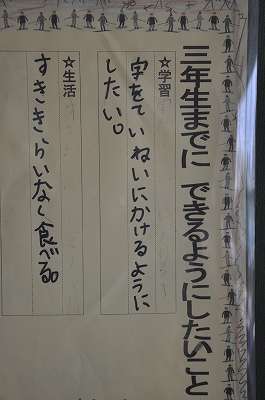 三年生までに できるようにしたいこと
☆学習
字をていねいにかけるように
したい。
☆生活
すききらいなく食べる。